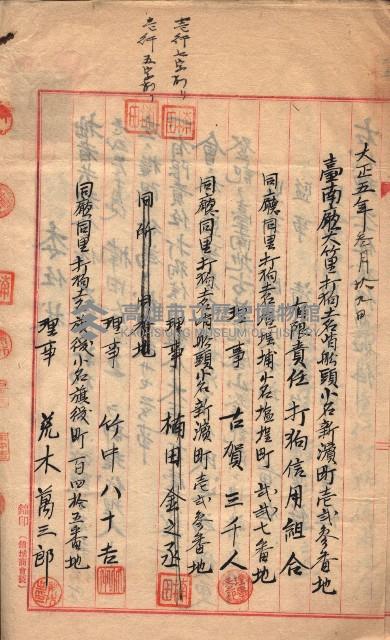 壱行七字削リ
壱行五字削リ
大正五年参月廿九日
臺南廳大竹里打狗土名哨船頭小名新濱町壱弐参番地
有限責任打狗信用組合
同廳同里打狗土名塩埕埔小名塩埕町弐弐七番地
理事 古賀三千人
同廳同里打狗土名哨船頭小名新濱町壱弐参番地
理事 楠田金之丞
同所 同番地
理事 竹中八十吉
同廳同里打狗土名旗後小名旗後町一百四拾五番地
理事 荒木萬三郎
高雄市立歷史博物館